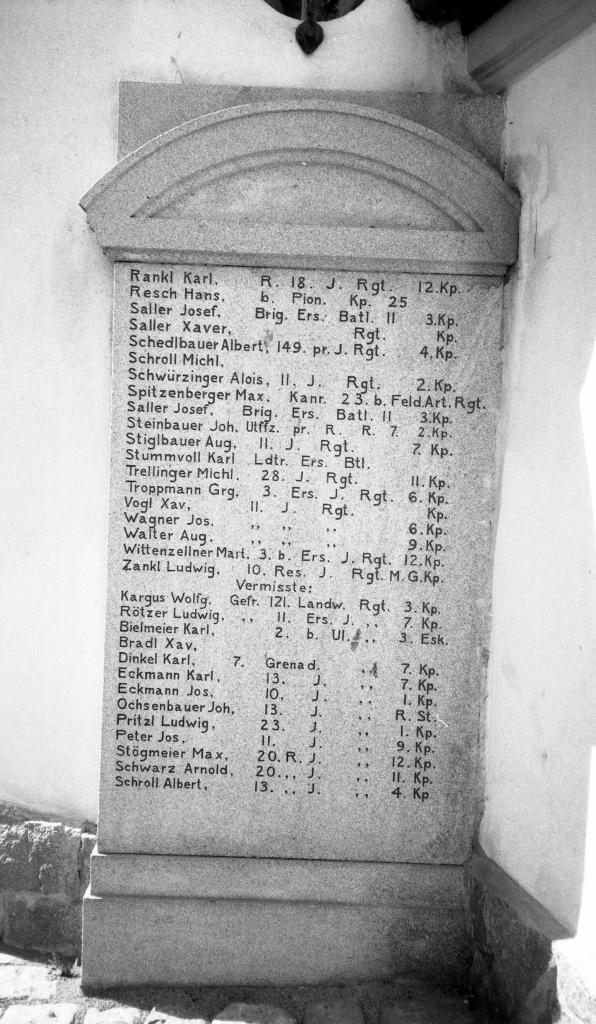 Rankl Karl, R. 18. J. Rgt. 12.Kp.
Resch Hans, b. Pion. Kp. 25
Saller Josef, Brig. Ers. Batl. II 3.Kp.
Saller Xaver, Rgt. Kp.
Schedlbauer Albert, 149. pr. J. Rgt. 4.Kp.
Schroll Michl,
Schwürzinger Alois, II. J. Rgt. 2.Kp.
Spitzenberger Max, Kanr. 23. b. Feld.Art.Rgt.
Saller Josef, Brig. Ers. Batl. II 3.Kp.
Steinbauer Joh, Utffz. pr. R. R. 7. 2.Kp.
Stiglbauer Aug, II. J. Rgt. 7. Kp.
Stummvoll Karl Ldtr. Ers. Btl.
Trellinger Michl. 28. J. Rgt. II. Kp.
Troppmann Grg, 3. Ers. J. Rgt. 6. Kp.
Vogl Xav, II. J. Rgt. Kp.
Wagner Jos, ,, ,, ,, 6.Kp.
Walter Aug, ,, ,, ,, 9.Kp.
Wittenzellner Mart, 3. b. Ers. J. Rgt. 12.Kp.
Zankl Ludwig, 10. Res. J. Rgt. M.G.Kp.
Vermisste:
Kargus Wolfg, Gefr. 121. Landw. Rgt. 3. Kp.
Rötzer Ludwig, ,, II. Ers. J. ,, 7. Kp.
Bielmeier Karl, 2. b. Ul. ,, 3. Esk.
Bradl Xav,
Dinkel Karl, 7. Grenad. ,, 7. Kp.
Eckmann Karl, 13. J. ,, 7. Kp.
Eckmann Jos, 10. J. ,, 1. Kp.
Ochsenbauer Joh, 13. J. ,, R. St.
Pritzl Ludwig, 23. J. ,, 1. Kp.
Peter Jos, II. J. ,, 9. Kp.
Stögmeier Max, 20. R. J. ,, 12. Kp.
Schwarz Arnold, 20. ,, J. ,, II. Kp.
Schroll Albert, 13. ,, J. ,, 4. Kp.